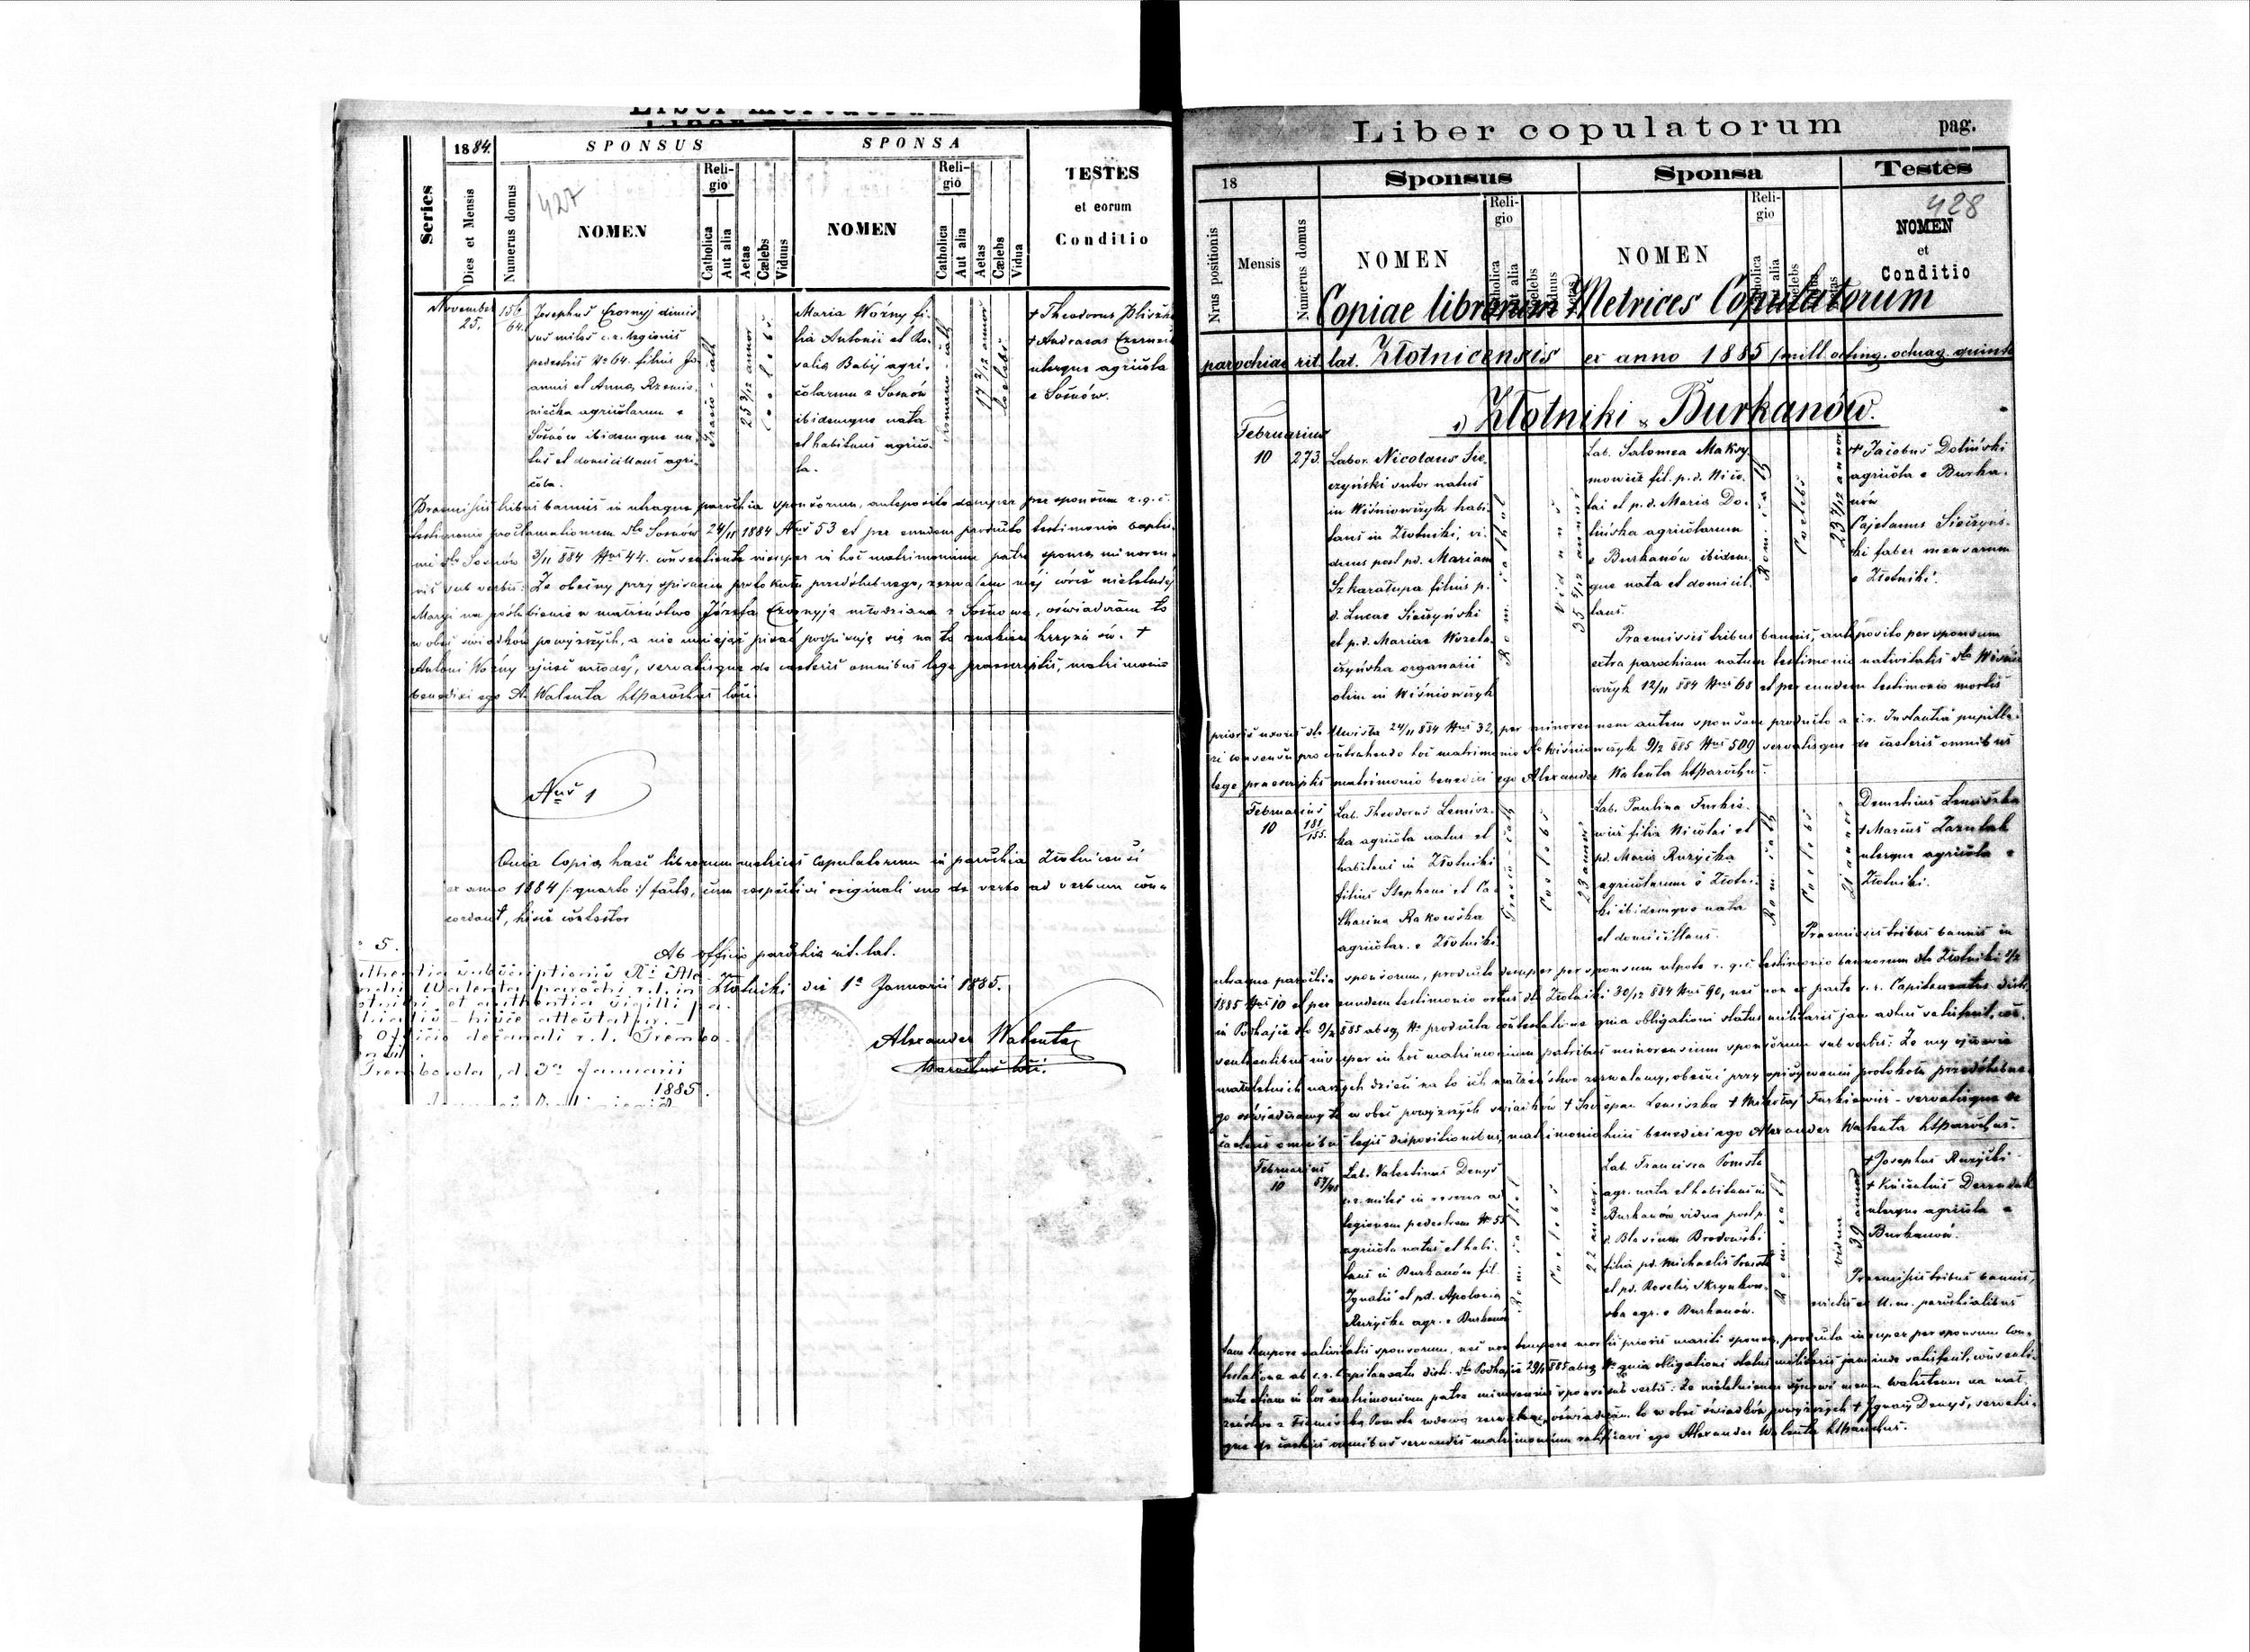 1884.
SPONSUS
SPONSA
TESTES
et eorum
Conditio
Series
Dies et Mensis
Numerus domus
427
NOMEN
Religio
Catholica
Aut alia
Aetas
Cælebs
Viduus
NOMEN
Religio
Catholica
Aut alia
Aetas
Cælebs
Vidua
November
25.
156
64.
Josephus Czornyj dimis
sus miles c. r. legionis
pedestris No 64. filius Jo
annis et Anna Rzemie
niečka agricolarum e
Sosnów ibidemque na
tus et domicilians agri
cola.
Graeco-cath
25 3/12 annor
Coelebs
Maria Wórny fi
lia Antonii et Ro
salia Babij agri
colarum e Sosnów
ibidemque nata
et habitans agrico
la.
17 2/12 annor
Coelebs
+ Theodorus
+ Andreas
uterque agricola
e Sosnów.
Praemissis tribus bannis in utraque parochia sponsorum, anteposito semper per sponsum r. g. c.
testimonio proclamationum dto Sosnów 24/11 1884 Nus 53 et per eundem producto testimonio baptis
mi dto Sosnów 3/11 884 Nus 44. consentiente insuper in hoc matrimonium patre sponsae minoren
nis sub verbis: Że obecny przy spisaniu protokołu przedślubnego, zezwalam mej córce nieletniej
Maryi na poślubienie w małżeństwo Józefa Czornyja młodziana z Sosnowa, oświadczam to
w obec świadków powyższych, a nie umiejąc pisać podpisuję się na to znakiem krzyża św. +
Antoni Worny ojciec młodej, servatisque de caeteris omnibus lege praescriptis, matrimonio
benedixi ego A. Walenta ltparochus loci.
Nus 1
Quia Copia haec librorum matrices Copulatorum in parochia Złotnicensi
ex anno 1884 /: quarto :/ facta, cum respectivi originali suo de verbo ad verbum con
cordant, hisce contestor
Ab officio parochia rit. lat.
Złotniki die 1a Januarii 1885.
Alexander Walenta
parochus loci.
5.
Walenta parochi r.l. in
et authentia sigilli
hisce attestatur.
Officio decanali r. l. Trembo
Trembowla, d. 3a Januarii
1885.
Liber copulatorum
pag.
18
Sponsus
Sponsa
Testes
428
Nrus positionis
Mensis
Numerus domus
NOMEN
Religio
NOMEN
Religio
NOMEN
et
Conditio
Copiae librorum Metrices Copulatorum
parochiae rit. lat. Złotnicensis ex anno 1885 /mill. octing. octuag. quinto
Złotniki & Burkanów.
Februarius
10
273.
Labor. Nicolaus Sie
czyński sutor natus
in Wiśniowczyk habi
tans in Złotniki, vi
duus post pd. Mariam
Szkaratupa filius p.
d. Lucae Sieczyński
et p. d. Mariae
organarii
olim in Wiśniowczyk
Rom. cathol
Viduus
35 5/12 annor
Lab. Salomea Maksy
mowicz fil. p. d. Nico
lai et p. d. Maria Do
lińska agricolarum
e Burkanów ibidem
que nata et domicil
ians.
Rom. cath
Coelebs
23 7/12 annor
+ Jacobus Doliński
agricola e Burka
nów
Cajetanus Sieczyńs
ki faber mensarum
e Złotniki.
Praemissis tribus bannis, anteposito per sponsum
extra parochiam natum testimonio nativitatis dto Wiśnio
wczyk 12/11 884 Nus 68 et per eundem testimonio mortis
prioris uxoris dto 24/11 884 Nus 32, per minorennem autem sponsam producto a c. r. Instantia pupilla
ri consensu pro contrahendo hoc matrimonio dto Wiśniowczyk 9/2 885 Nus 509 servatisque de caeteris omnibus
lege praescriptis matrimonio benedixi ego Alexander Walenta ltparochus.
Februarius
10
181
155.
Lab. Theodorus Lemisz
ka agricola natus et
habitans in Złotniki
filius Stephani et Ca
tharina Rakowska
agricolar. e Złotniki
Graeco-cath
Coelebs
23 annor
Lab. Paulina Furkie
wicz filia Nicolai et
pd. Maria Ruzycka
agricolarum e Złotni
ki ibidemque nata
et domicilians.
Rom. cath
Coelebs
21 annor
Demetrius Lemiszka
+ Marcus
uterque agricola e
Złotniki.
Praemissis tribus bannis in
utraque parochia sponsorum, producto semper per sponsum utpote r. g. c. testimonio bannorum dto Złotniki
1885 Nus 10 et per eundem testimonio ortus dto Złotniki 30/12 884 Nus 90, nec non ex parte c. r. Capitaneatus distr.
in Podhajce dto 9/2 885 absq No producta contestatione quia obligationi status militaris jam actus satisfecit, con
sentientibus insuper in hoc matrimonium patribus minorennium sponsorum sub verbis: Że my ojcowie
małoletnich naszych dzieci na to ich małżeństwo zezwalamy, obecni przy spisywaniu protokołu przedślubne
go oświadczamy to w obec powyższych świadków + Szczepan Lemiszka + Mikołaj Furkiewicz - servatisque de
caeteris omnibus legis dispositionibus, matrimonio huic benedixi ego Alexander Walenta ltparochus.
Februarius
10
57/48
Lab. Valentinus Denys
miles in reserva ad
legionem pedestrem No 55
agricola natus et habi
tans in Burkanów fil.
Ignatii et pd. Apolonia
Ruzycka agr. e Burkanów
Rom. cathol
Coelebs
22 annor.
Lab. Francisca Pomste
agr. nata et habitans in
Burkanów vidua post p.
d. Blasium Brodowski
filia pd. Michaelis
et pd. Rosalia Skrynkow
ska agr. e Burkanów.
Rom. cath
vidua
39 annor
+ Josephus Ruzycki
+ Vincentius
uterque agricola e
Burkanów.
Praemissis tribus bannis,
parochialibus
tam tempore nativitatis sponsorum, nec non tempore mortis prioris mariti sponsae, producta insuper per sponsum con
testatione ab c. r. Capitaneatu distr. dto Podhajce 29/1 885 absq No quia obligationi status militaris jam satisfecit, consenti
ente etiam in hoc matrimonium patre minorennis sponsi sub verbis: Że nieletniemu synowi memu Walentemu na mał
żeństwo z wdową zezwalam, oświadczam to w obec świadków powyższych + Ignacy Denys, servatis
que de caeteris omnibus servandis matrimonium ratificavi ego Alexander Walenta ltparochus.